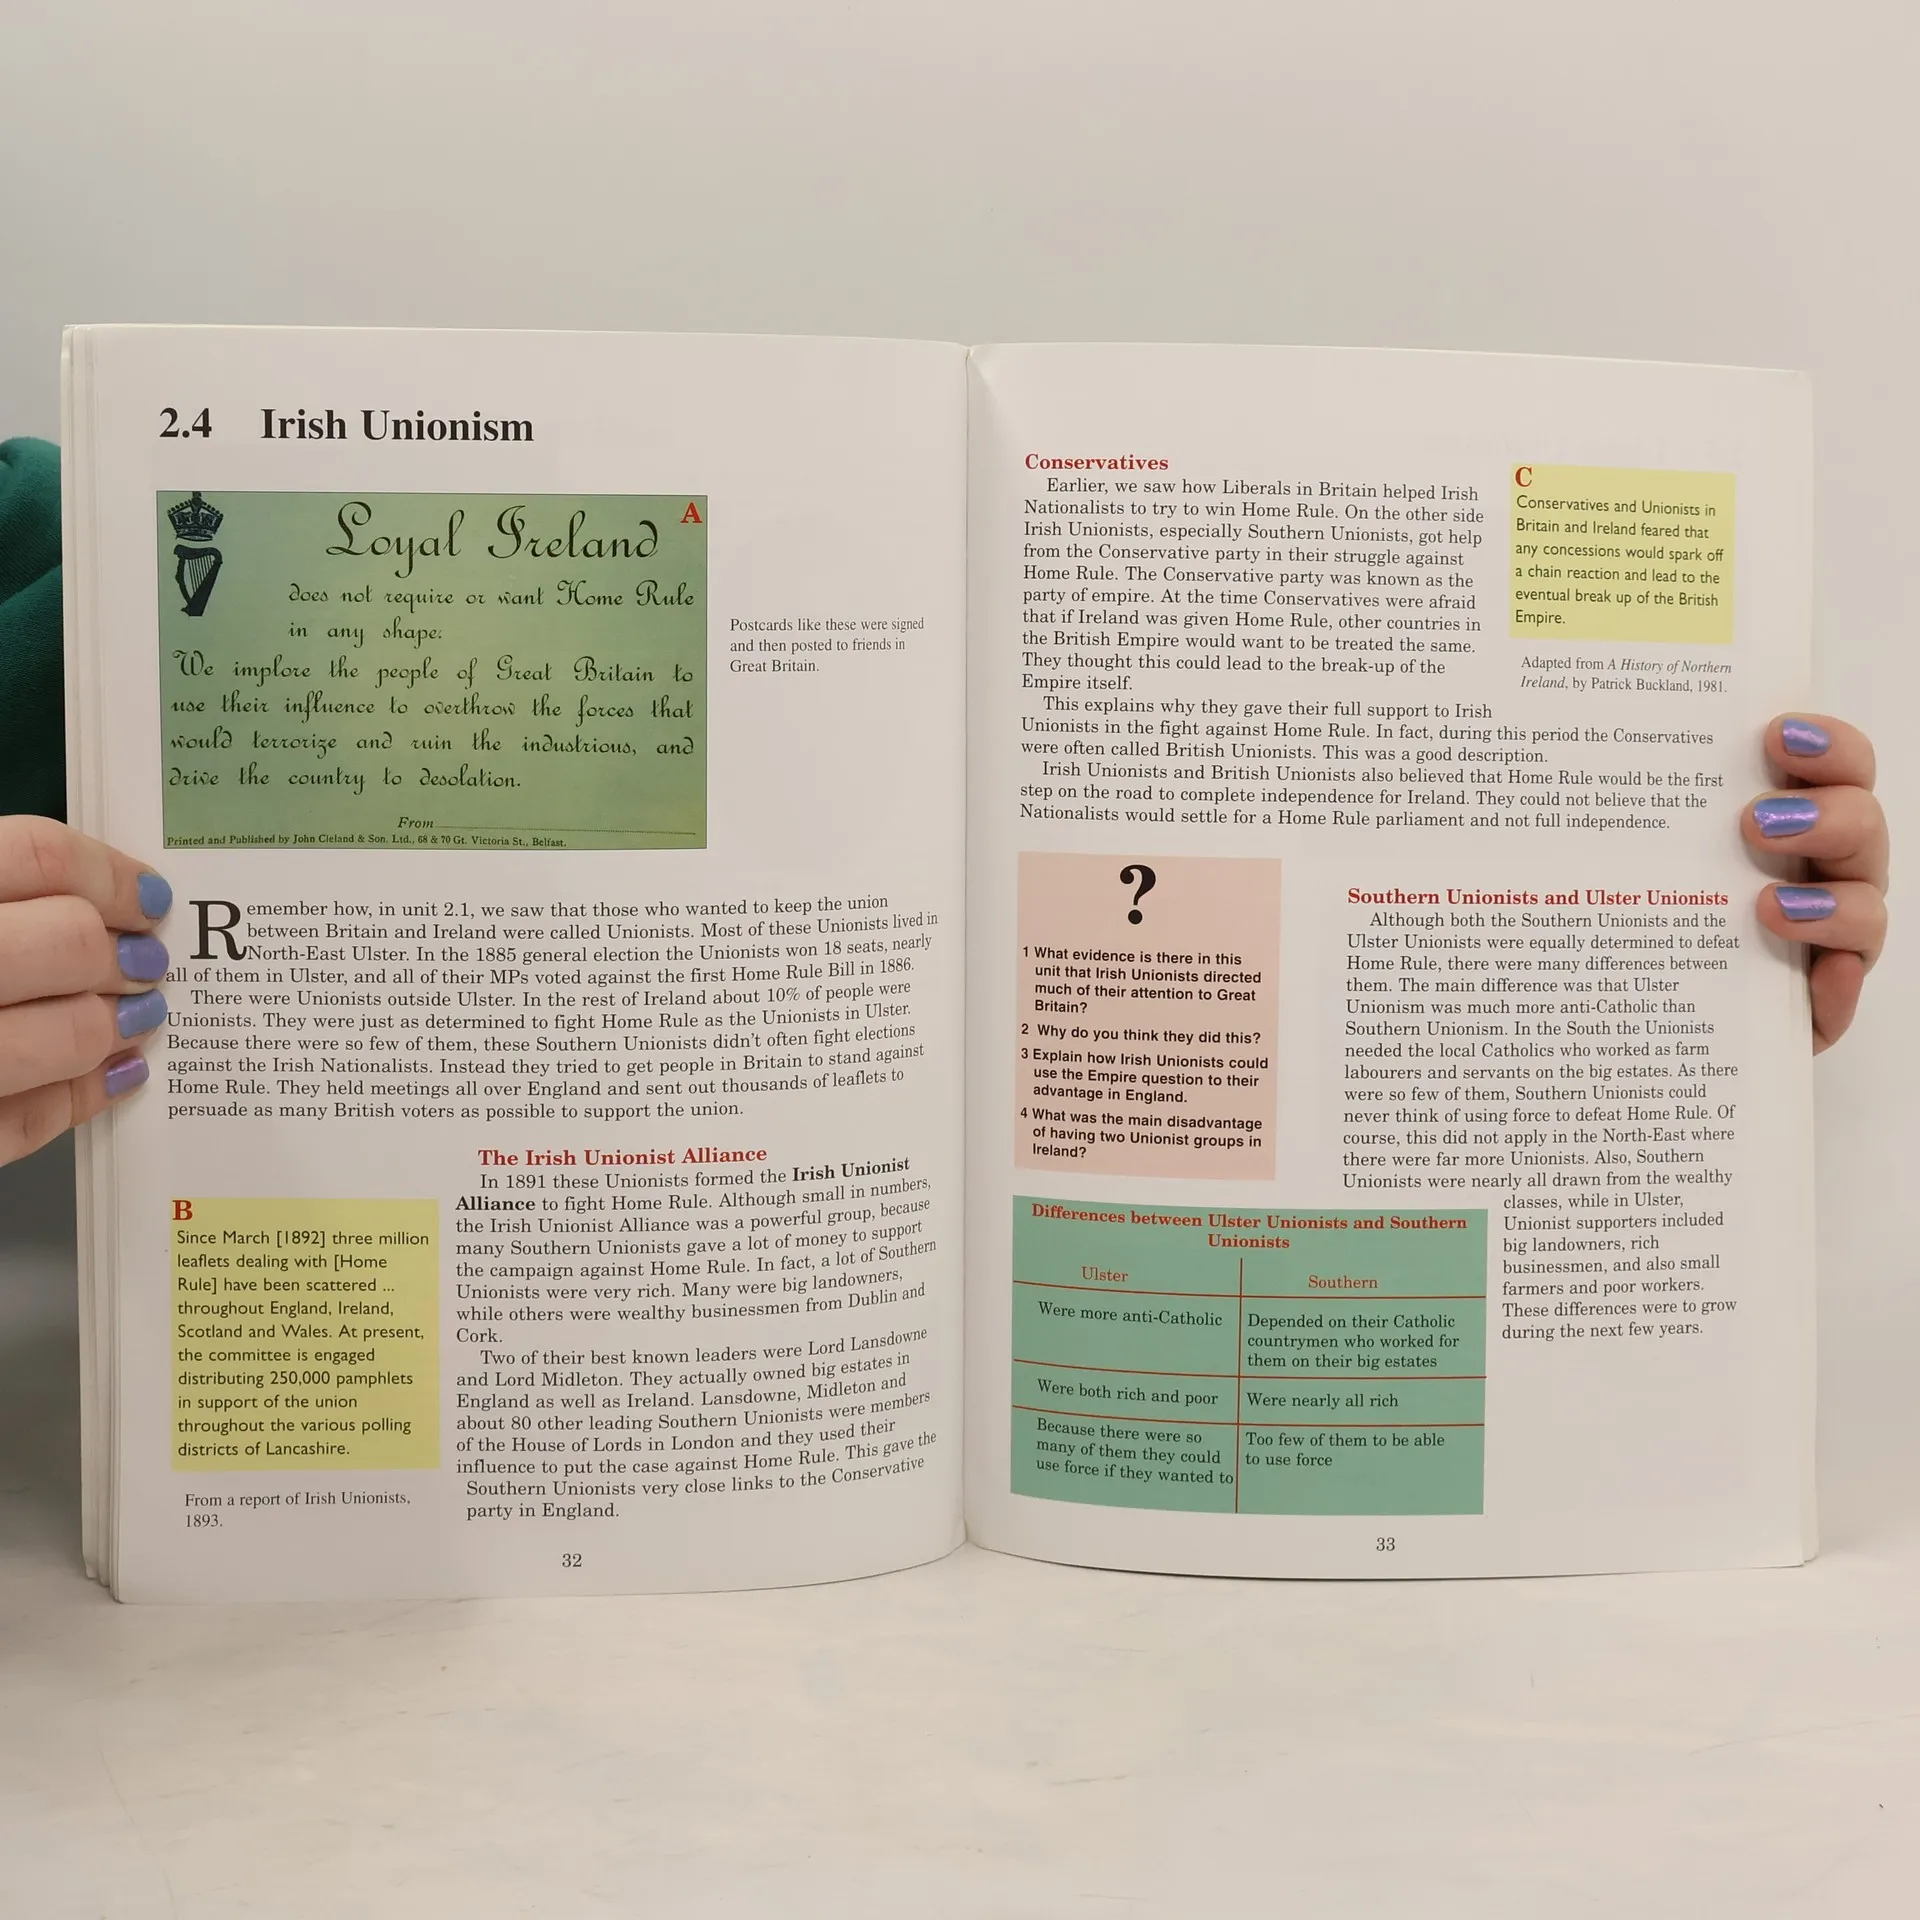 2.4 Irish Unionism
A
Loyal Ireland
does not require or want Home Rule
in any shape.
We implore the people of Great Britain to
use their influence to overthrow the forces that
would terrorize and ruin the industrious, and
drive the country to desolation.
From
Printed and Published by John Cleland & Son. Ltd., 68 & 70 Gt. Victoria St., Belfast.
Postcards like these were signed
and then posted to friends in
Great Britain.
Remember how, in unit 2.1, we saw that those who wanted to keep the union
between Britain and Ireland were called Unionists. Most of these Unionists lived in
North-East Ulster. In the 1885 general election the Unionists won 18 seats, nearly
all of them in Ulster, and all of their MPs voted against the first Home Rule Bill in 1886.
There were Unionists outside Ulster. In the rest of Ireland about 10% of people were
Unionists. They were just as determined to fight Home Rule as the Unionists in Ulster.
Because there were so few of them, these Southern Unionists didn't often fight elections
against the Irish Nationalists. Instead they tried to get people in Britain to stand against
Home Rule. They held meetings all over England and sent out thousands of leaflets to
persuade as many British voters as possible to support the union.
The Irish Unionist Alliance
In 1891 these Unionists formed the Irish Unionist
Alliance to fight Home Rule. Although small in numbers,
the Irish Unionist Alliance was a powerful group, because
many Southern Unionists gave a lot of money to support
the campaign against Home Rule. In fact, a lot of Southern
Unionists were very rich. Many were big landowners,
while others were wealthy businessmen from Dublin and
Cork.
Two of their best known leaders were Lord Lansdowne
and Lord Midleton. They actually owned big estates in
England as well as Ireland. Lansdowne, Midleton and
about 80 other leading Southern Unionists were members
of the House of Lords in London and they used their
influence to put the case against Home Rule. This gave the
Southern Unionists very close links to the Conservative
party in England.
B
Since March [1892] three million
leaflets dealing with [Home
Rule] have been scattered ...
throughout England, Ireland,
Scotland and Wales. At present,
the committee is engaged
distributing 250,000 pamphlets
in support of the union
throughout the various polling
districts of Lancashire.
From a report of Irish Unionists,
1893.
32
Conservatives
Earlier, we saw how Liberals in Britain helped Irish
Nationalists to try to win Home Rule. On the other side
Irish Unionists, especially Southern Unionists, got help
from the Conservative party in their struggle against
Home Rule. The Conservative party was known as the
party of empire. At the time Conservatives were afraid
that if Ireland was given Home Rule, other countries in
the British Empire would want to be treated the same.
They thought this could lead to the break-up of the
Empire itself.
This explains why they gave their full support to Irish
Unionists in the fight against Home Rule. In fact, during this period the Conservatives
were often called British Unionists. This was a good description.
Irish Unionists and British Unionists also believed that Home Rule would be the first
step on the road to complete independence for Ireland. They could not believe that the
Nationalists would settle for a Home Rule parliament and not full independence.
C
Conservatives and Unionists in
Britain and Ireland feared that
any concessions would spark off
a chain reaction and lead to the
eventual break up of the British
Empire.
Adapted from A History of Northern
Ireland, by Patrick Buckland, 1981.
?
1 What evidence is there in this
unit that Irish Unionists directed
much of their attention to Great
Britain?
2 Why do you think they did this?
3 Explain how Irish Unionists could
use the Empire question to their
advantage in England.
4 What was the main disadvantage
of having two Unionist groups in
Ireland?
Southern Unionists and Ulster Unionists
Although both the Southern Unionists and the
Ulster Unionists were equally determined to defeat
Home Rule, there were many differences between
them. The main difference was that Ulster
Unionism was much more anti-Catholic than
Southern Unionism. In the South the Unionists
needed the local Catholics who worked as farm
labourers and servants on the big estates. As there
were so few of them, Southern Unionists could
never think of using force to defeat Home Rule. Of
course, this did not apply in the North-East where
there were far more Unionists. Also, Southern
Unionists were nearly all drawn from the wealthy
classes, while in Ulster,
Unionist supporters included
big landowners, rich
businessmen, and also small
farmers and poor workers.
These differences were to grow
during the next few years.
Differences between Ulster Unionists and Southern
Unionists
Ulster
Southern
Were more anti-Catholic
Depended on their Catholic
countrymen who worked for
them on their big estates
Were both rich and poor
Were nearly all rich
Because there were so
many of them they could
use force if they wanted to
Too few of them to be able
to use force
33